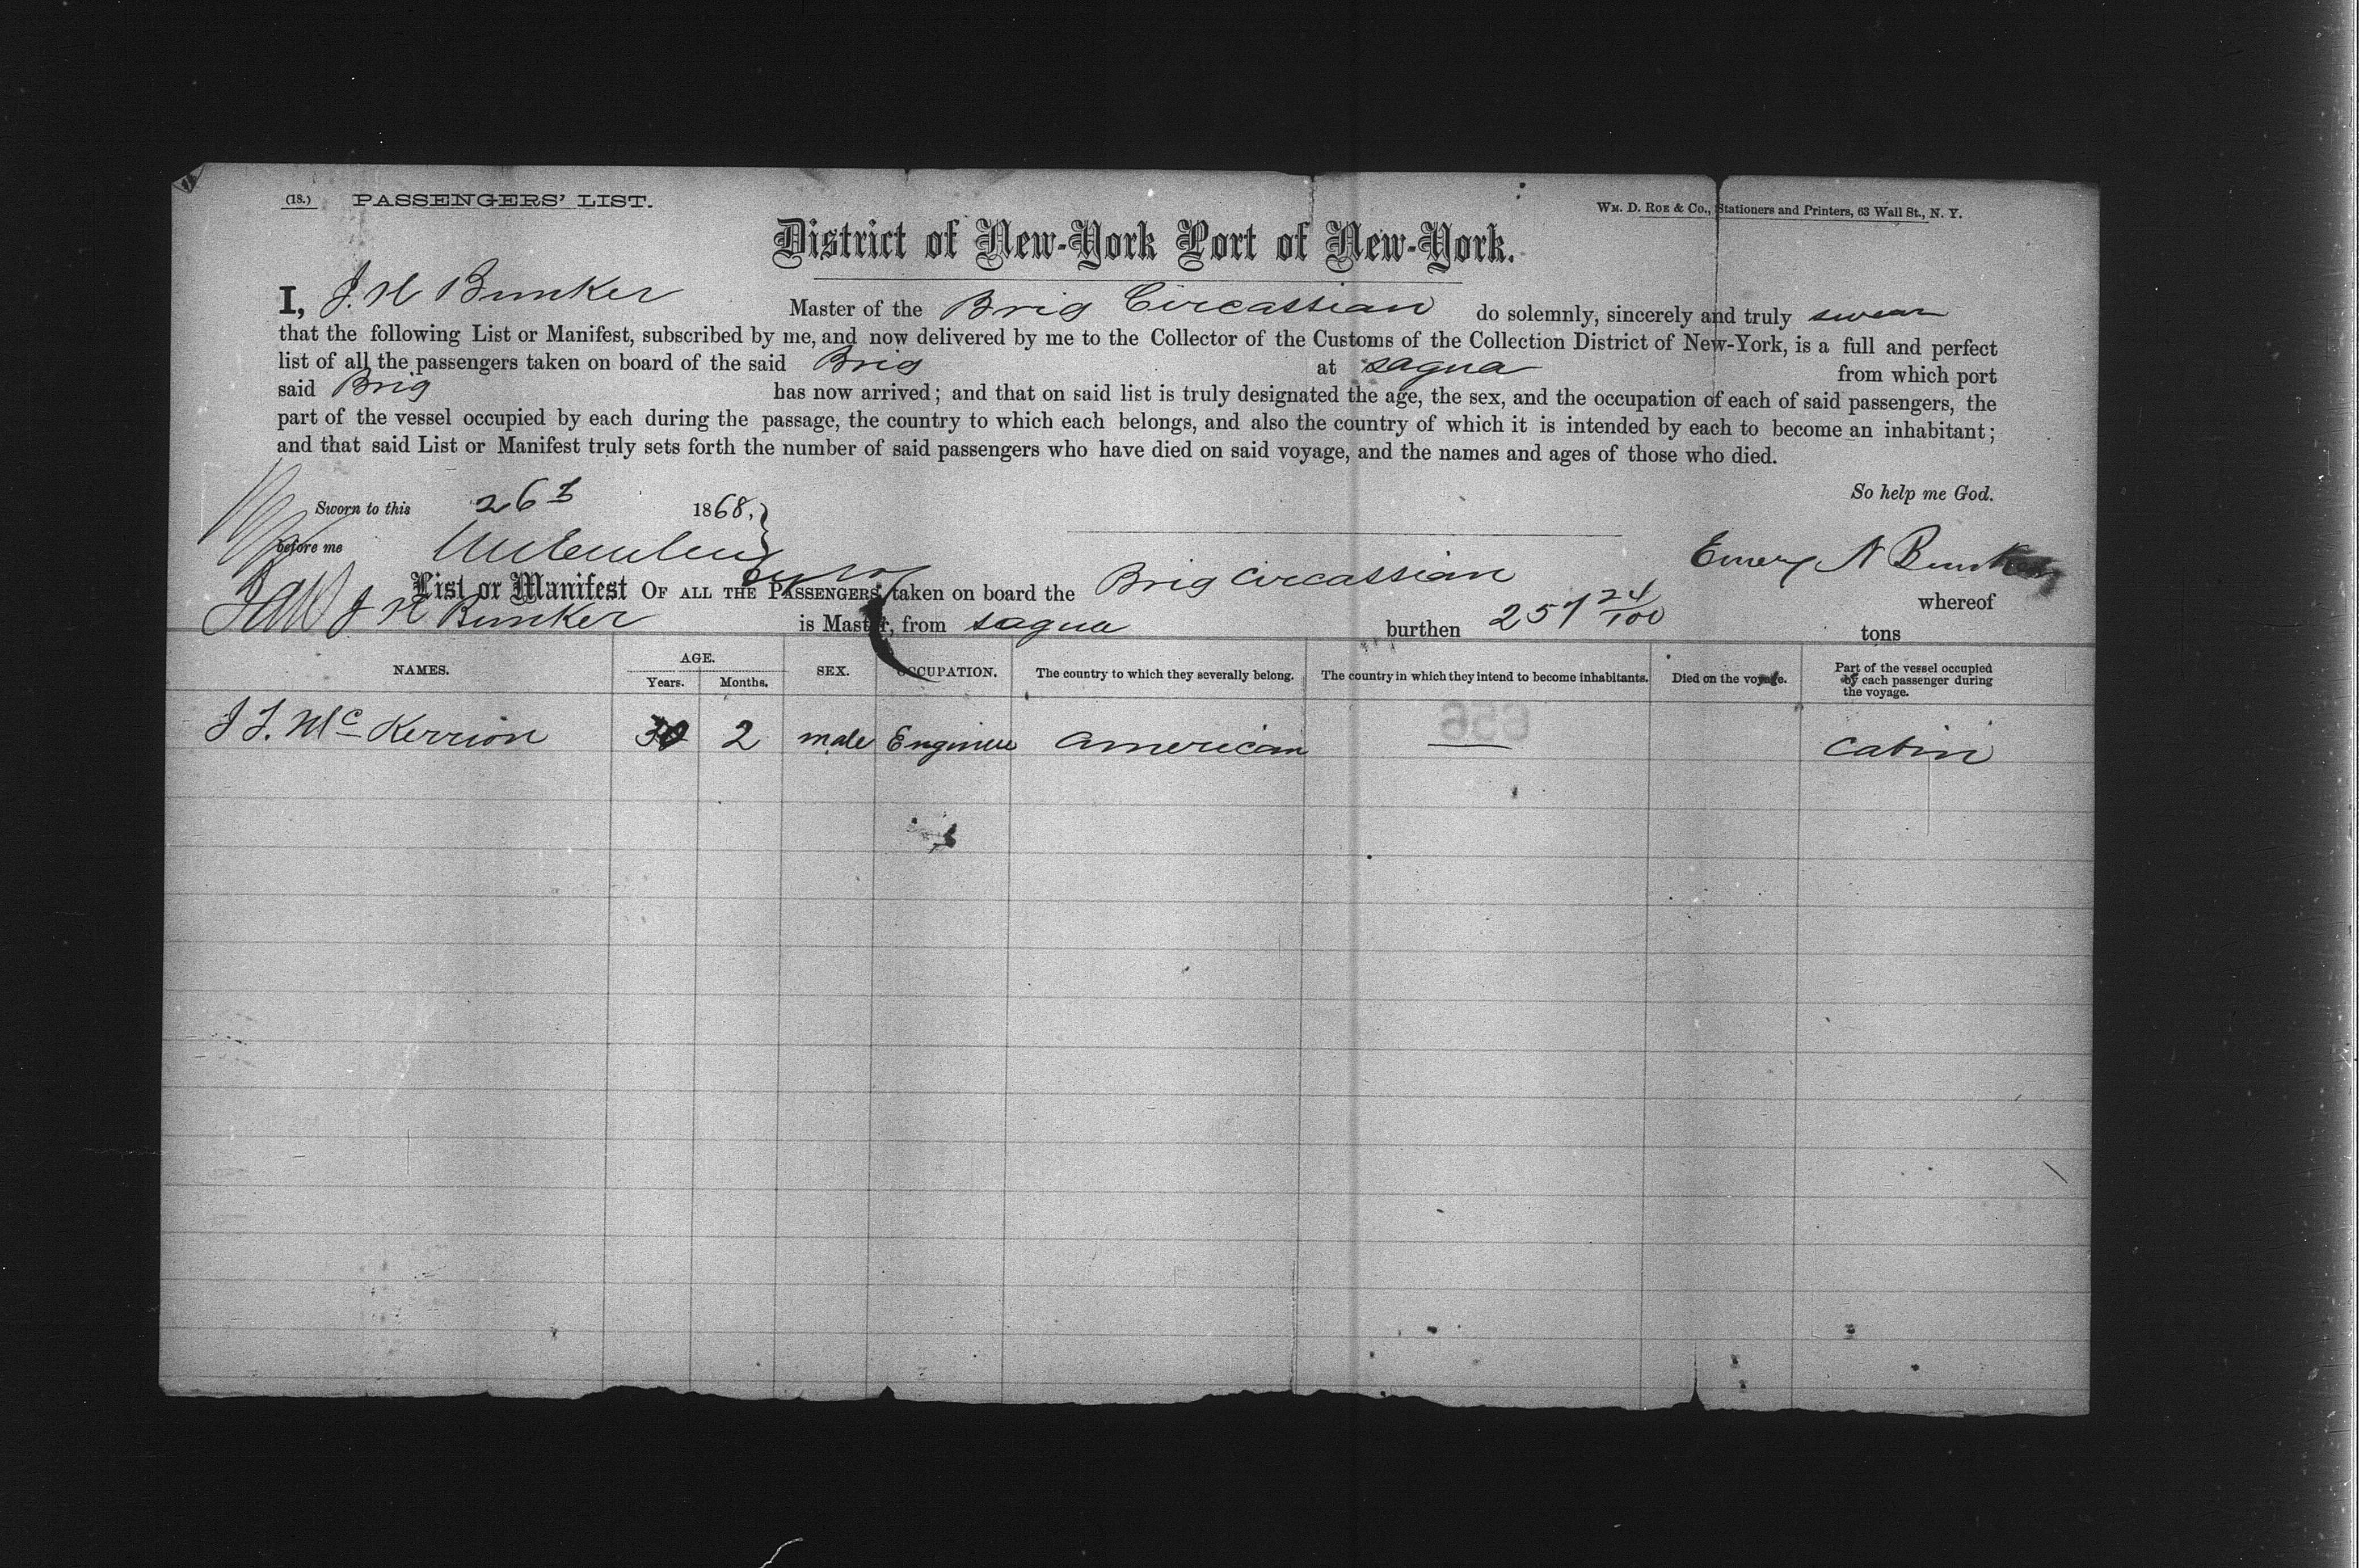 (18.) PASSENGERS' LIST.
WM. D. ROE & CO., Stationers and Printers, 63 Wall St., N. Y.
District of New-York Port of New-York.
I, J. H Bunker Master of the Brig Circassian do solemnly, sincerely and truly swear
that the following List or Manifest, subscribed by me, and now delivered by me to the Collector of the Customs of the Collection District of New-York, is a full and perfect
list of all the passengers taken on board of the said Brig at Sagua from which port
said Brig has now arrived; and that on said list is truly designated the age, the sex, and the occupation of each of said passengers, the
part of the vessel occupied by each during the passage, the country to which each belongs, and also the country of which it is intended by each to become an inhabitant;
and that said List or Manifest truly sets forth the number of said passengers who have died on said voyage, and the names and ages of those who died.
So help me God.
Sworn to this 26 1868,
before me
Emery N Bunker
List or Manifest OF ALL THE PASSENGERS taken on board the Brig Circassian whereof
J H Bunker is Master, from Sagua burthen 257 24/100 tons
NAMES. AGE. SEX. OCCUPATION. The country to which they severally belong. The country in which they intend to become inhabitants. Died on the voyage. Part of the vessel occupied by each passenger during the voyage.
Years. Months.
J. Mc Kerrion 30 2 male Engineer American — Cabin